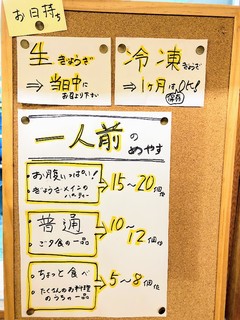 お日持ち
生ぎょうざ
⇒ 当日中に
お召し上り下さい
冷凍ぎょうざ
⇒ 1ヶ月はOK!
保存
一人前の
めやす
・お腹いっぱい!
・ぎょうざメインの
パーティー
→ 15〜20個位
普通
・ご夕食の一品
→ 10〜
12個位
・ちょっと食べ
・たくさんのお料理の
うちの一品
→ 5〜8個位